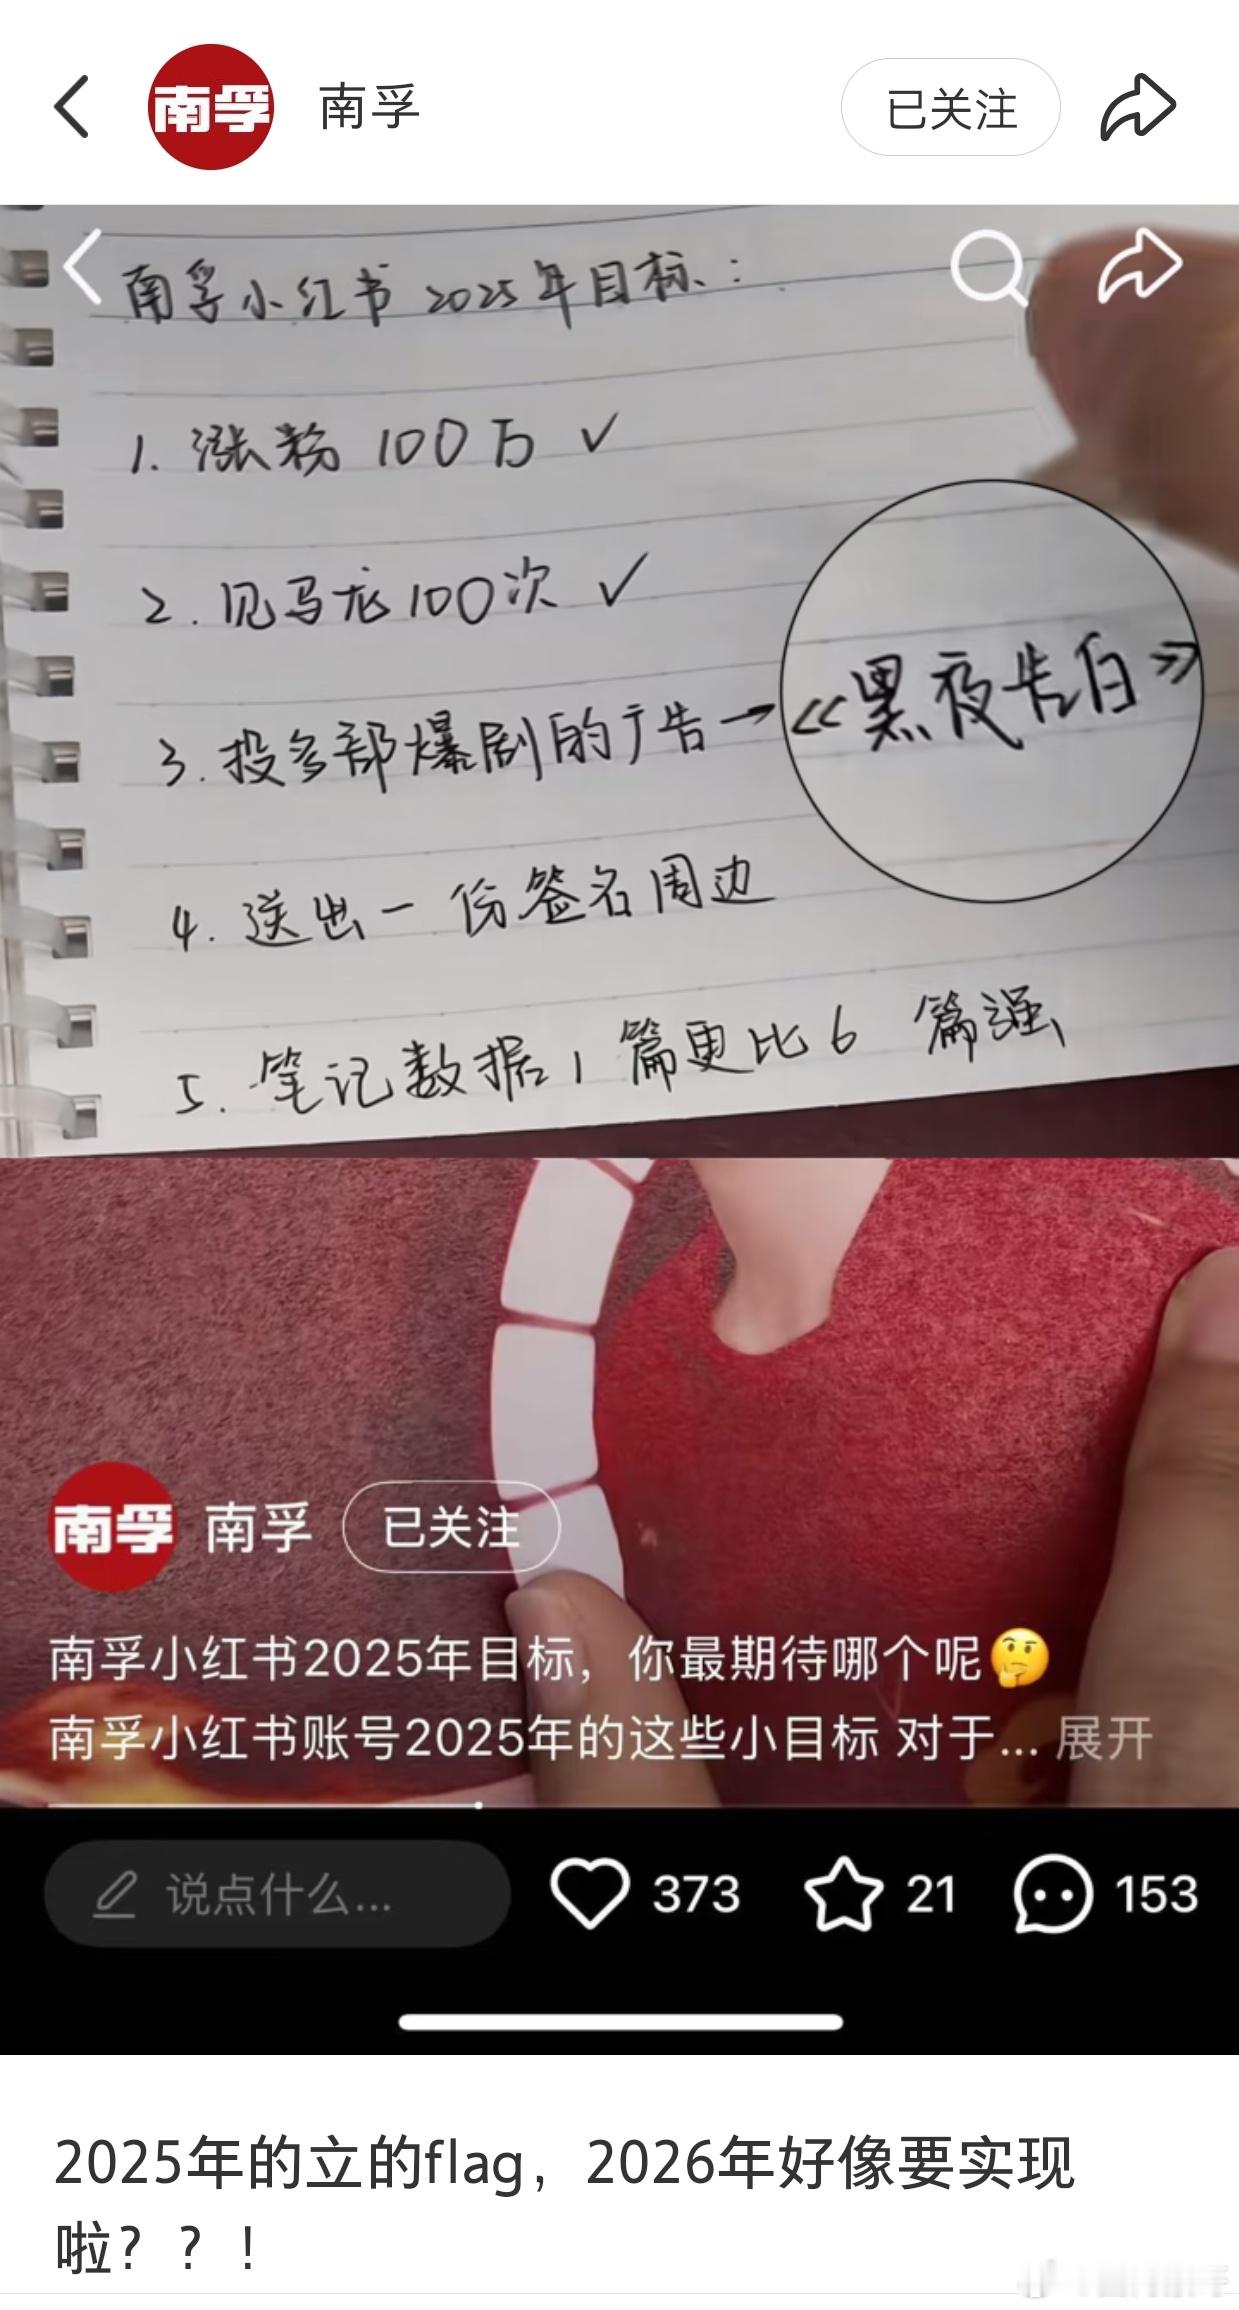 南孚
南孚
已关注
南孚小红书2025年目标:
1. 涨粉 100万 ✓
2. 见马龙100次 ✓
3. 投多部爆剧的广告→《黑夜告白》
4. 送出一份签名周边
5. 笔记数据1篇更比6篇强
南孚
南孚
已关注
南孚小红书2025年目标，你最期待哪个呢🤔
南孚小红书账号2025年的这些小目标 对于... 展开
说点什么...
373
21
153
2025年的立的flag，2026年好像要实现
啦？？！